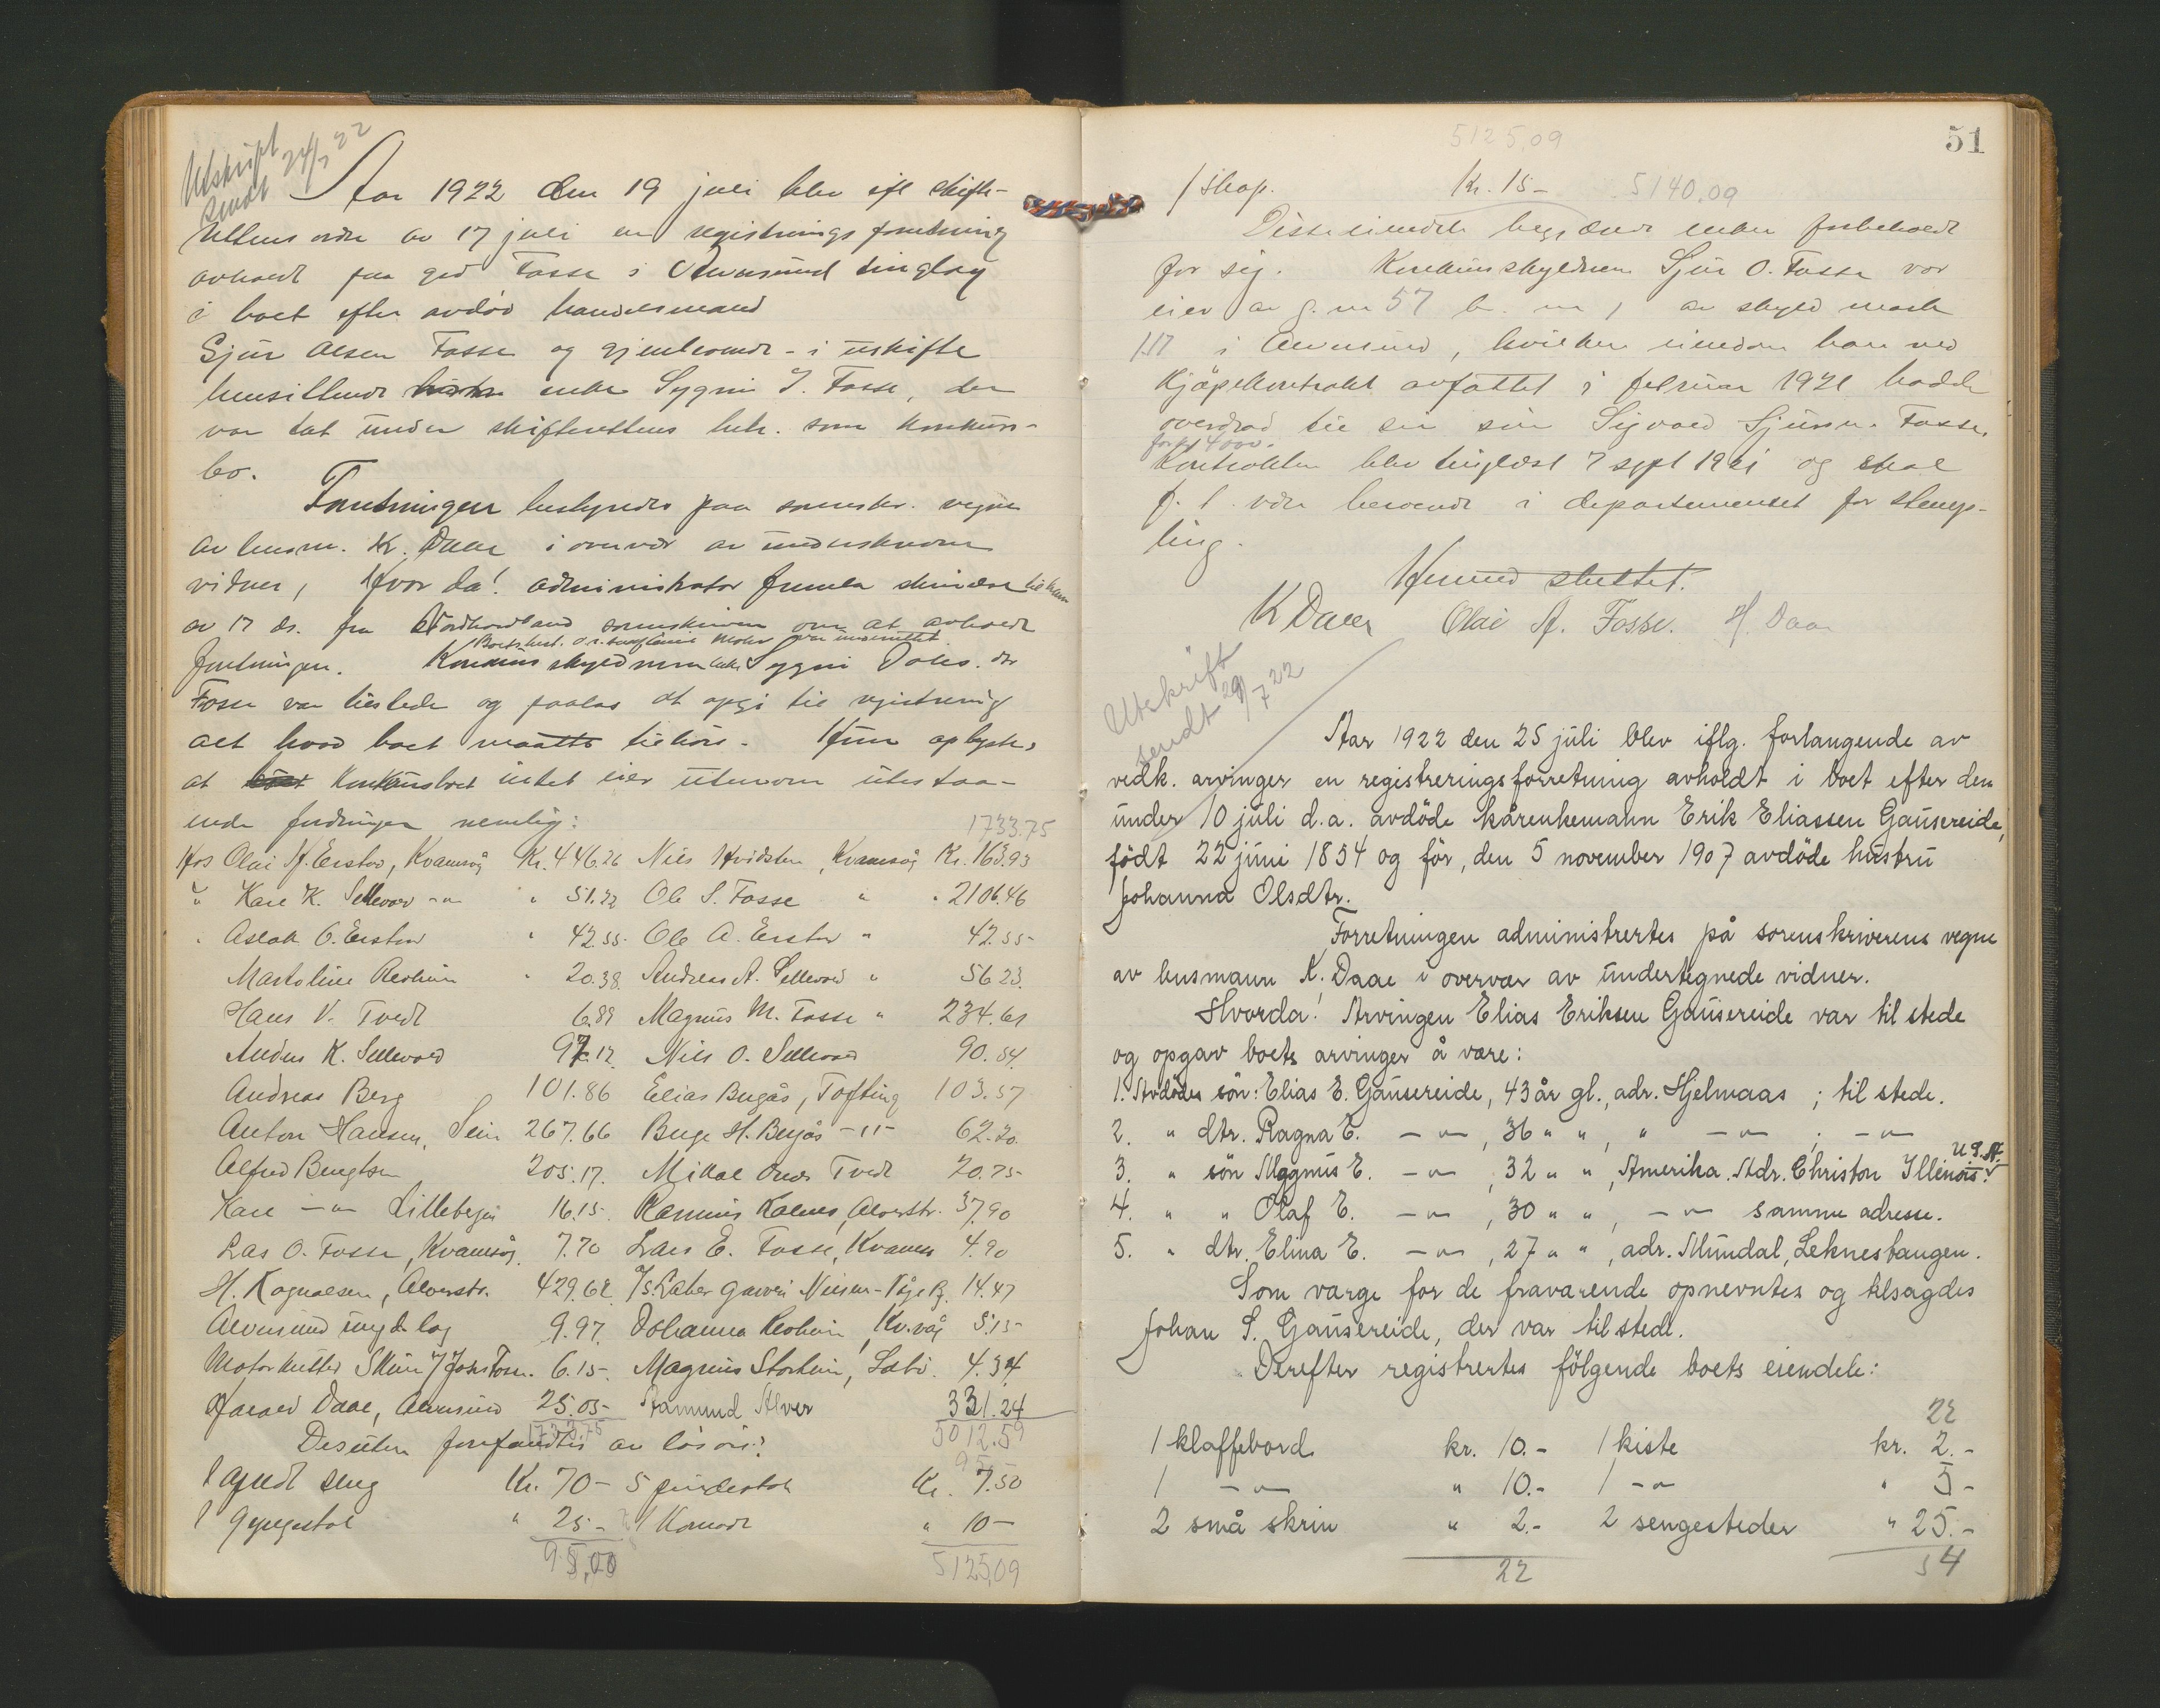 Utskript
sendt 24/7 22
Aar 1922 den 19 juli blev ifl skifte-
rettens ordre av 17 juli en registrings forretning
avholdt paa grd Fosse i Alversund tinglag
i boet efter avdød handelsmand
Sjur Olsen Fosse og gjenlevende - i uskifte
hensittende enke Sygni J. Fosse, der
var tat under skifterettens beh. som konkurs-
bo.
Forretningen bestyredes paa sorenskr. vegne
av lensm. K. Daae i overvær av underskrevne
vidner, Hvor da! administrator fremla skrivelse til ham
av 17 ds. fra Nordhordland sorenskriveri om at avholde
Boets best. o.r. sakfører Mohr var underrettet
forretningen. Konkurs skyldneren enke Sygni Johs. dtr
Fosse var tilstede og paalas at opgi til registrering
alt hvad boet maatte tilhøre. Hun oplyste,
at konkursboet intet eier utenom utestaa-
ende fordringer nemlig:
1733.75
Hos Olai H. Erstad, Kvamsvåg Kr. 446.26 Nils Hvidsten, Kvamsvåg Kr. 163.93
" Kare K. Sellevold -"- " 51.22 Ole S. Fosse " " 2106.46
" Aslak O. Erstad " 42.55 Ole A. Erstad " 42.55
Martoline Revheim " 20.38 Andreas A. Sellevold " 56.23
Hans V. Tvedt 6.89 Magnus M. Fosse " 234.61
Anders K. Sellevold 97.12 Nils O. Sellevold 90.84
Andreas Berg 101.86 Elias Bugås, Tofting 103.57
Anton Hansen, Seim 267.66 Buge H. Bugås -"- 62.20
Alfred Bengtsen 205.17 Mikal Tvedt 20.75
Kare -"- Lillebergen 16.15 Rasmus Kalnes, Alverstr. 37.90
Lars O. Fosse, Kvamsvåg 7.70 Lars E. Fosse, Kvams 4.90
H. Ragnalsen, Alverstr. 429.62 14.47
Alversund ungd. lag 9.97 Johanna Revheim, Kv.våg 5.15
Motorkutter 6.15 Magnus Storheim, 4.34
Harald Daae, Alversund 25.05 Aamund Alver 331.24
1733.75 5012.59
Desuten forefandtes av løsøre:
95
1 opredt seng Kr. 70 - 5 pindestole Kr. 7.50
1 gyngestol " 25 - 1 Komode " 10 -
95,00 5125,09
51
5125,09
1 skap. Kr. 15 - 5140.09
Disse eiendele begjærde enken forbeholdt
for sig. Konkursskyldneren Sjur O. Fosse var
eier av g. nr 57 b. nr 1 av skyld mark
1.17 i Alversund, hvilken eiendom han ved
kjøpekontrakt avfattet i februar 1921 hadde
overdrad til sin søn Sigvald Sjursen Fosse.
for kr 4000.
Kontrakten blev tinglæst 7 sept 1921 og skal
f. t. være beroende i departementet for stemp-
ling.
Hermed sluttet.
K Daae Olai A. Fosse. H. Daae
Utskrift
sendt 29/7 22
Aar 1922 den 25 juli blev iflg. forlangende av
vedk. arvinger en registreringsforretning avholdt i boet efter den
under 10 juli d.a. avdöde kårenkemann Erik Eliassen Gausereide,
födt 22 juni 1854 og för, den 5 november 1907 avdöde hustru
Johanna Olsdtr.
Forretningen administrertes på sorenskriverens vegne
av lensmann K. Daae i overvær av undertegnede vidner.
Hvorda! Arvingen Elias Eriksen Gausereide var til stede
og opgav boets arvinger å være:
1. Avdödes sön: Elias E. Gausereide, 43 år gl., adr. Hjelmaas ; til stede.
2. " dtr. Ragna E. -"- , 36 " " , " -"- ; -"-
U.S.A.
3. " sön Magnus E. -"- , 32 " " , Amerika. Adr. Christon Illinois.
4. " " Olaf E. -"- , 30 " " , -"- samme adresse.
5. " dtr. Elina E. -"- , 27 " " , adr. Mundal, Leknestangen.
Som værge for de fraværende opnevntes og tilsagdes
Johan S. Gausereide, der var til stede.
Derefter registrertes fölgende boets eiendele:
22
1 klaffebord kr. 10.- 1 kiste kr. 2.-
1 -"- " 10.- 1 -"- " 5-
2 små skrin " 2.- 2 sengesteder " 25.-
22 54